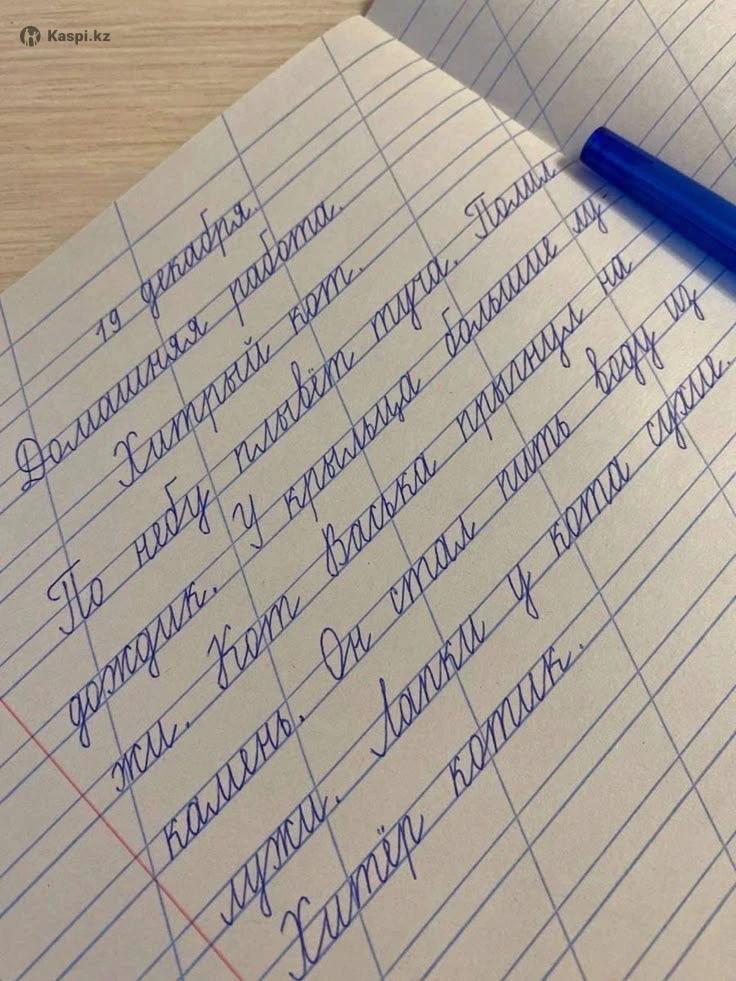 Kaspi.kz
19 декабря.
Домашняя работа.
Хитрый кот.
По небу плывёт туча. Полил
дождик. У крыльца большие лу-
жи. Кот Васька прыгнул на
камень. Он стал пить воду из
лужи. Лапки у кота сухие.
Хитёр котик.